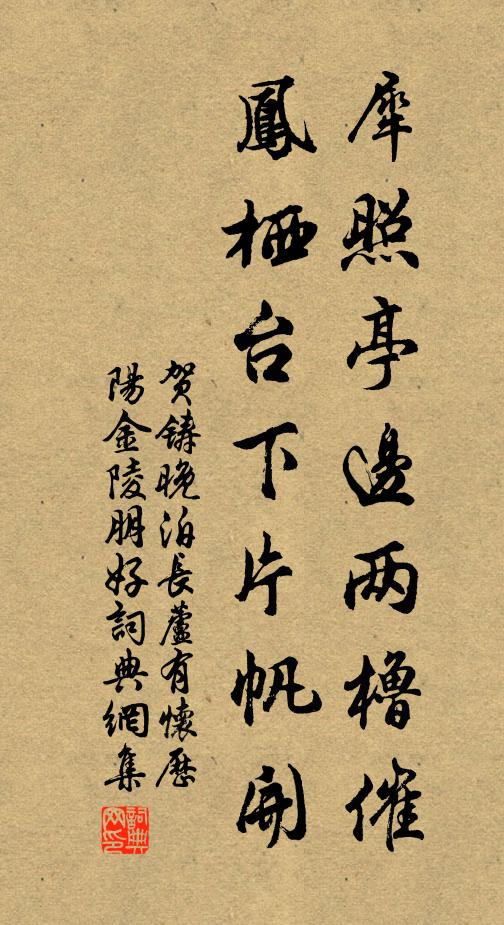 犀照亭邊两櫓催
鳳栖台下片帆開
贺鑄晚泊長蘆有懷歷
陽金陵朋好詞典網集
詞典网印